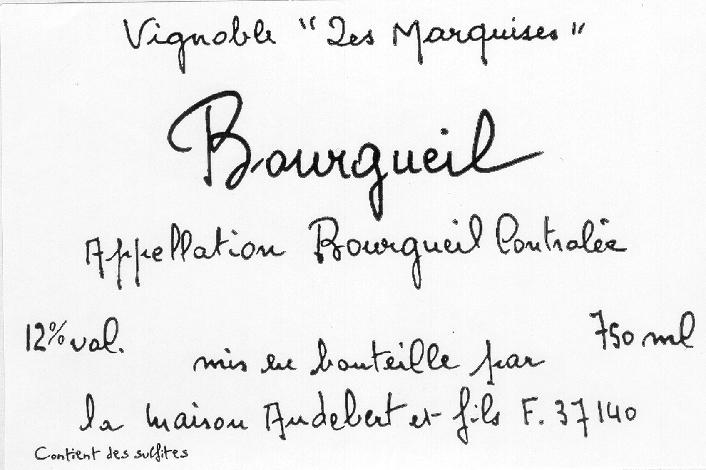 Vignoble "Les Marquises"
Bourgueil
Appellation Bourgueil Controlée
12% vol.
750 ml
mis en bouteille par
la maison Audebert et fils F. 37140
Contient des sulfites